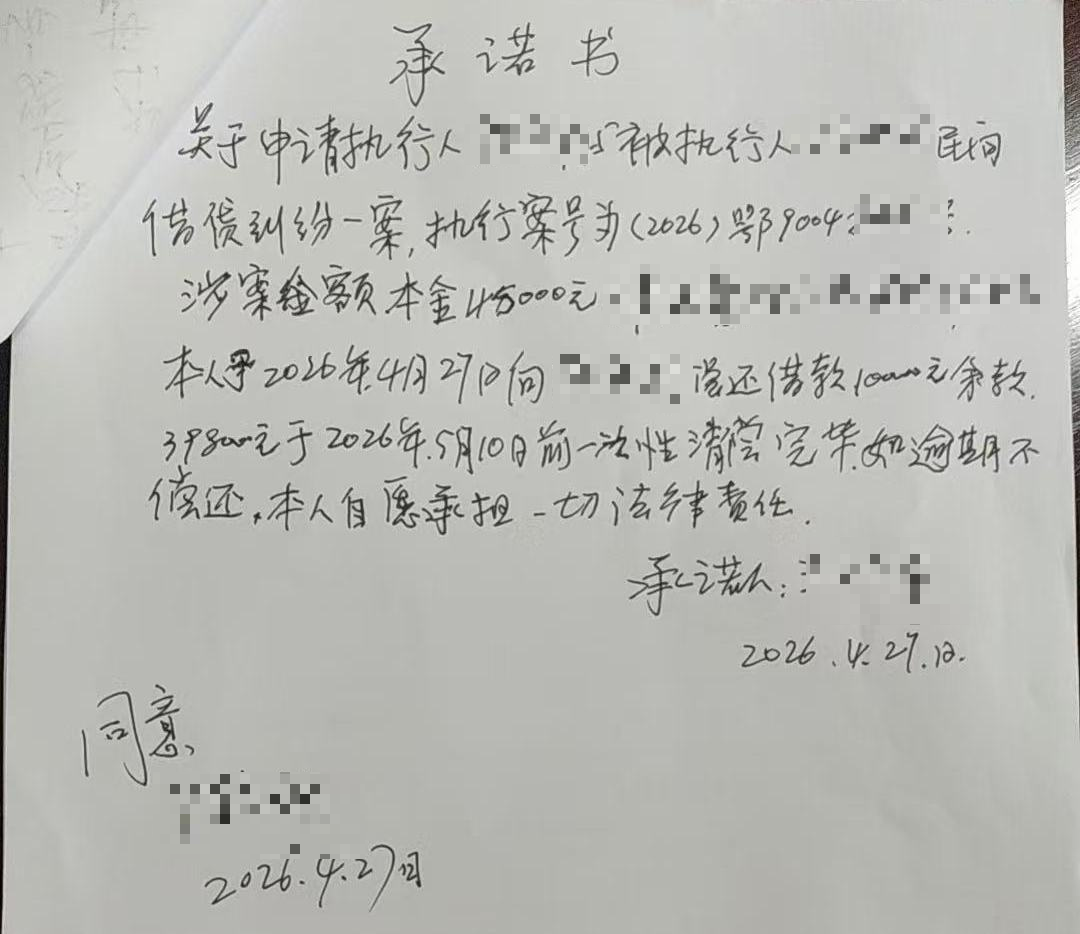 承诺书
关于申请执行人 与被执行人 民间
借贷纠纷一案,执行案号为(2026)鄂9004
涉案金额本金45000元
本人于2026年4月27日向 偿还借款10000元余款
39800元于2026年5月10日前一次性清偿完毕.如逾期不
偿还,本人自愿承担一切法律责任.
承诺人:
2026.4.27.日.
同意
2026.4.27日